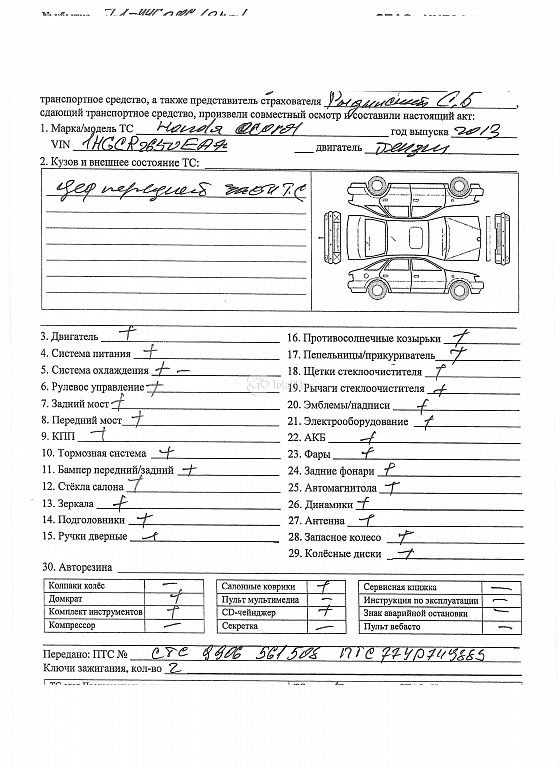 транспортное средство, а также представитель страхователя С.Б,
сдающий транспортное средство, произвели совместный осмотр и составили настоящий акт:
1. Марка/модель ТС Honda год выпуска 2013
VIN двигатель бензин
2. Кузов и внешнее состояние ТС:
деф передней части ТС
3. Двигатель + 16. Противосолнечные козырьки +
4. Система питания + 17. Пепельницы/прикуриватель +
5. Система охлаждения + – 18. Щетки стеклоочистителя +
6. Рулевое управление + 19. Рычаги стеклоочистителя +
7. Задний мост + 20. Эмблемы/надписи +
8. Передний мост + 21. Электрооборудование +
9. КПП + 22. АКБ +
10. Тормозная система + 23. Фары +
11. Бампер передний/задний + 24. Задние фонари +
12. Стёкла салона + 25. Автомагнитола +
13. Зеркала + 26. Динамики +
14. Подголовники + 27. Антенна +
15. Ручки дверные + 28. Запасное колесо +
29. Колёсные диски +
30. Авторезина
Колпаки колёс – Салонные коврики + Сервисная книжка –
Домкрат + Пульт мультимедиа – Инструкция по эксплуатации –
Комплект инструментов + CD-чейнджер + Знак аварийной остановки –
Компрессор – Секретка – Пульт вебасто –
Передано: ПТС № СТС 9906 561508 ПТС
Ключи зажигания, кол-во 2